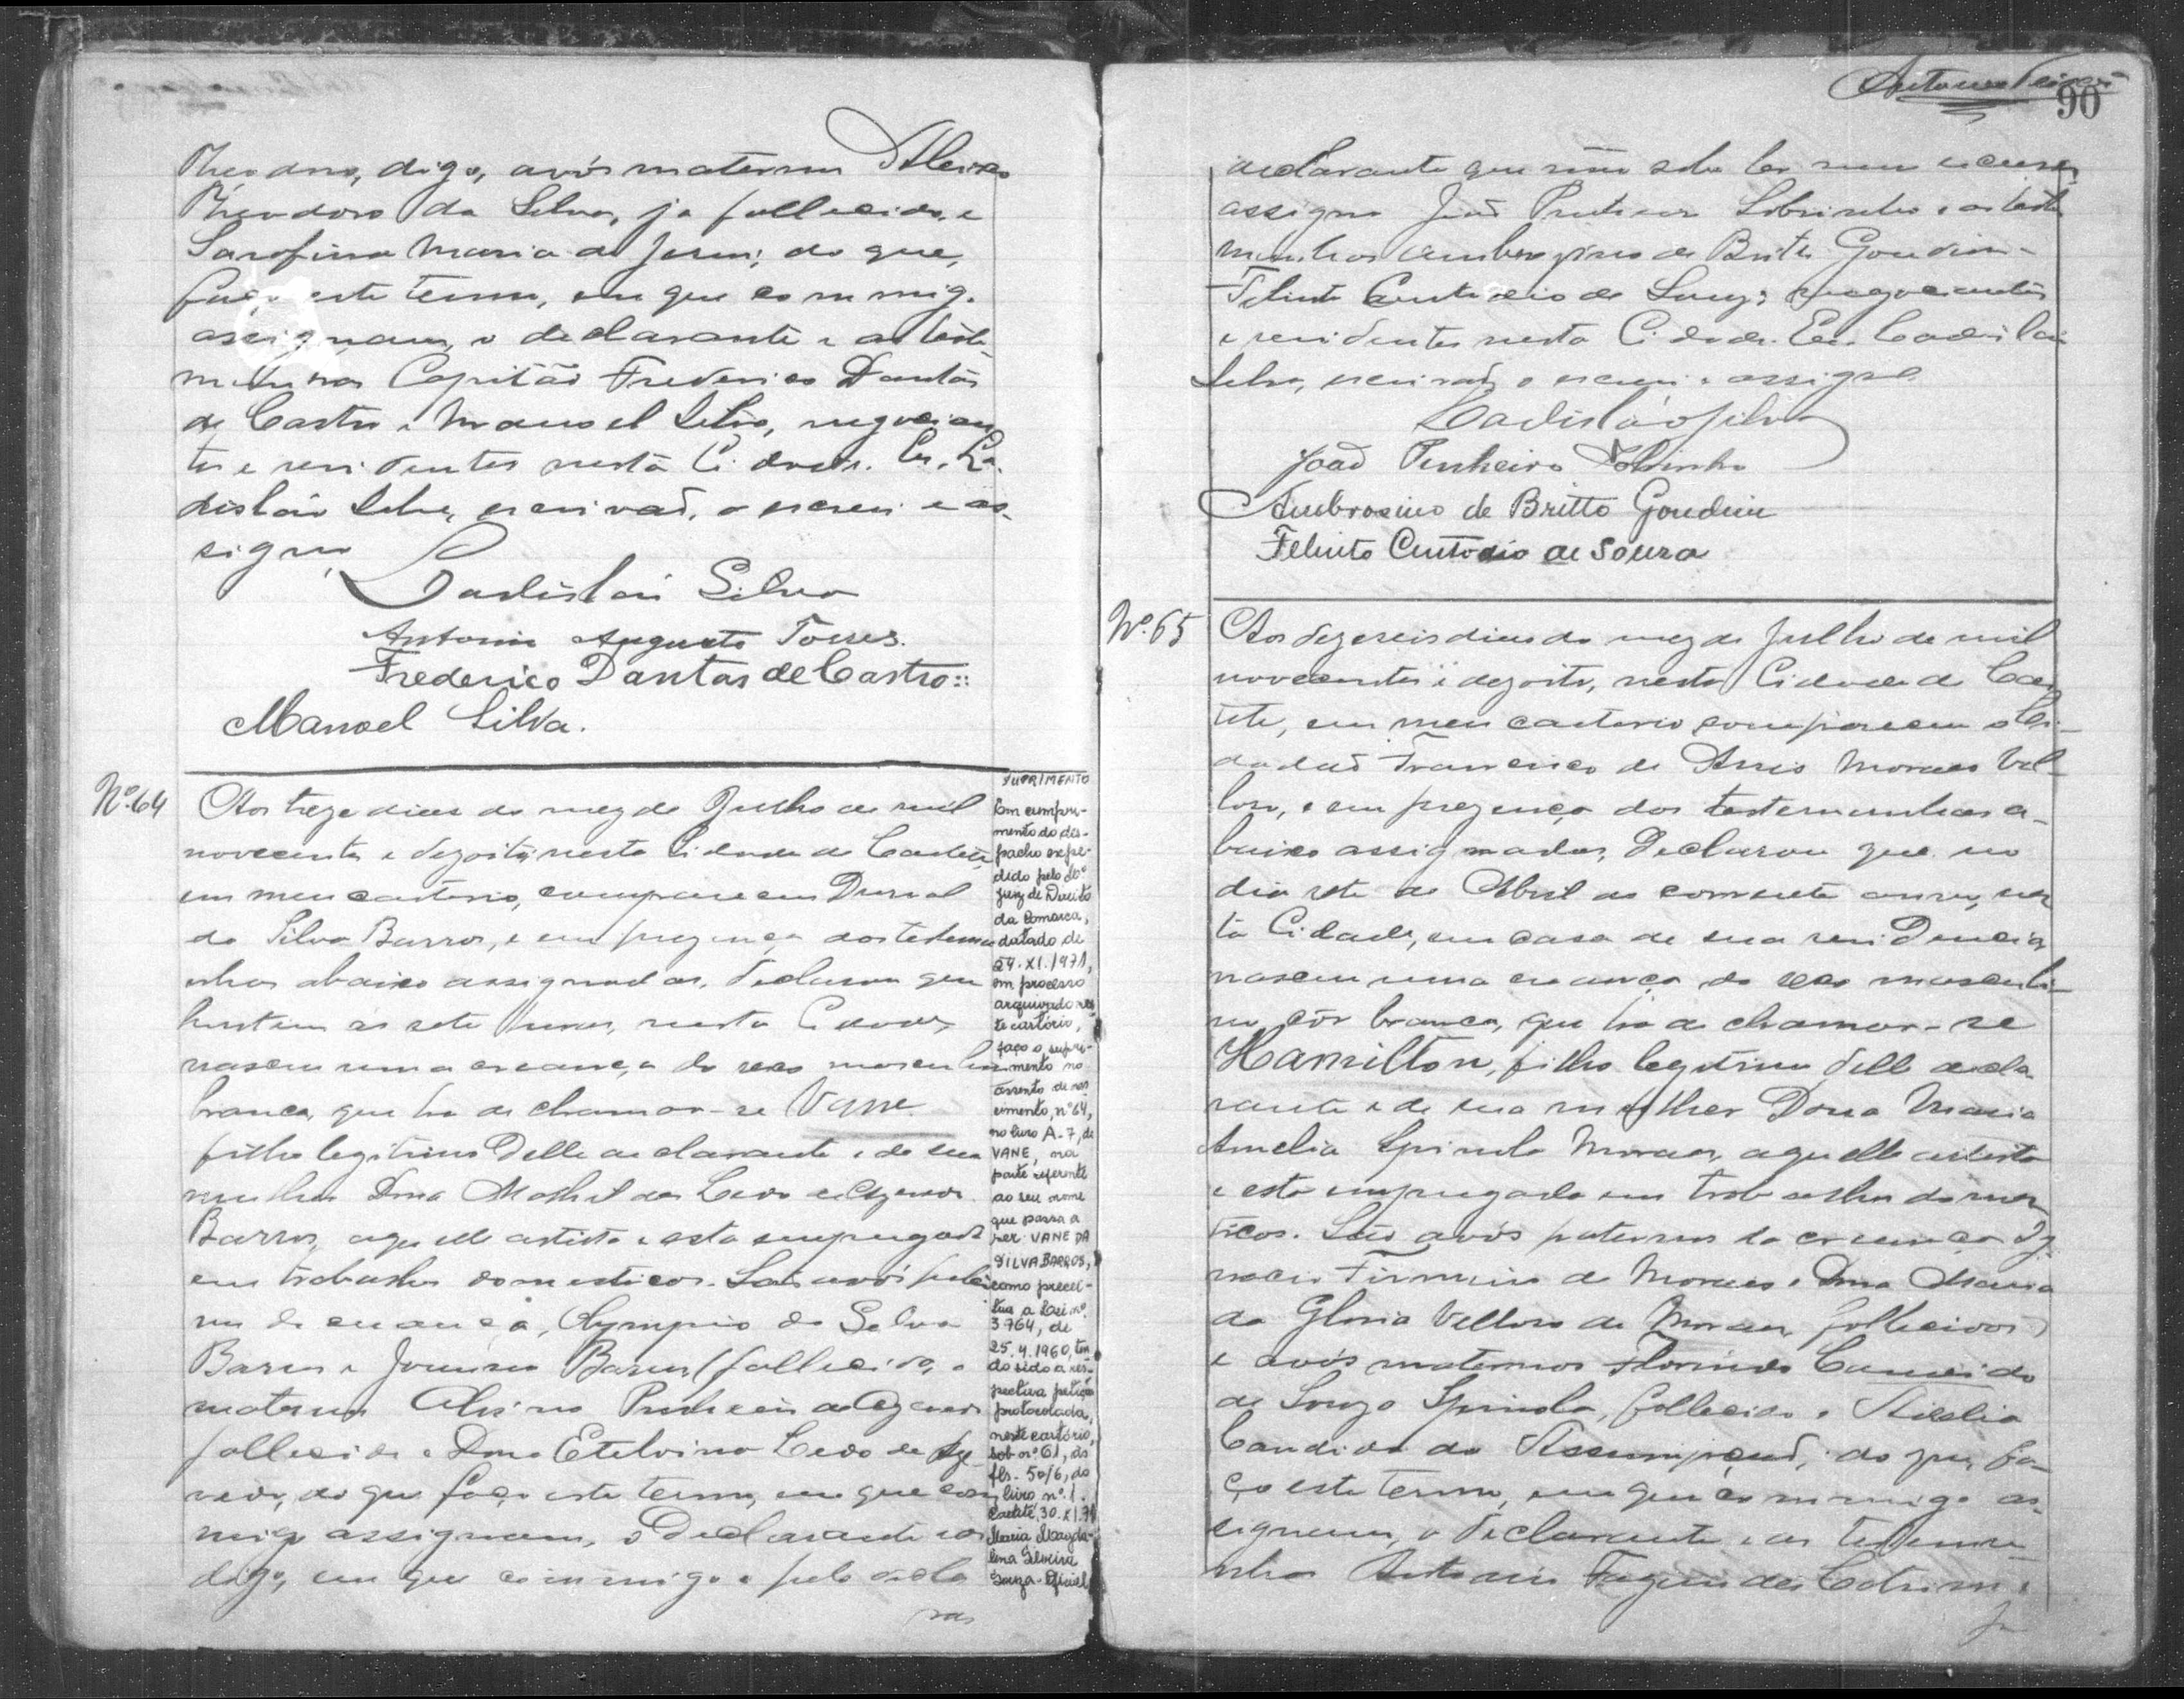 Theodoro, digo, avós maternos Aleixo
Theodoro da Silva, já fallecido, e
Sarofina Maria de Jesus; do que,
faço este termo, em que commigo
assignam, o declarante e as teste-
munhas Capitão Frederico Dantas
de Castro e Manoel Silva, negocian
tes e residentes nesta Cidade. Eu, La-
disláo Silva, escrivaõ, o escrevi e as-
signo
Ladisláo Silva
Antonio Augusto Torres.
Frederico Dantas de Castro::
Manoel Silva.
Nº 64
Aos treze dias do mez de Julho de mil
novecentos e dezoito, nesta Cidade de Caeteté,
em meu cartorio, compareceu Durval
da Silva Barros, e em presença das testemu
nhas abaixo assignadas, declarou que
hontem ás sete horas, nesta Cidade,
nasceu uma creança do sexo masculino
branca, que ha de chamar-se Vane
filho legitimo delle declarante e de sua
mulher Dona de Azevedo
Barros, aquelle artista e esta empregada
em trabalhos domesticos. Saõ avós pater
nos da creança, Olympio da Silva
Barros e Barros, fallecida, e
maternos Pinheiro de Azevedo
fallecido e Dona Etelvina Ledo de Aze-
vedo, do que faço este termo, em que com
migo assignam, o declarante e as
digo, em que commigo e pelo decla
ran
SUPRIMENTO
Em cumpri-
mento do des-
pacho expe-
dido pelo Drº
Juiz de Direito
da Comarca,
datado de
24.XI.1971,
em processo
arquivado nes
te cartório,
faço o supri-
mento no
assento de nas
cimento, nº 64,
no livro A-7, de
VANE, na
parte referente
ao seu nome
que passa a
ser VANE DA
SILVA BARROS,
como precei-
tua a Lei nº
3.764, de
25.4.1960, ten
do sido a res-
pectiva petição
protocolada,
neste cartório,
sob nº 61, às
fls. 50/6, do
livro nº 1.
Caetité, 30.XI.71
Maria Magda-
lena Silveira
Souza-Oficial
90
declarante que não sabe ler nem escrever
assigna João Pinheiro Sobrinho e as teste
munhas Ambrosino de Britto Gondim
Felinto Custodio de Souza, negociantes
e residentes nesta Cidade. Eu Ladisláo
Silva, escrivaõ o escrevi e assigno.
Ladisláo Silva
Joaõ Pinheiro Sobrinho
Ambrosino de Britto Gondim
Felinto Custodio de Souza
Nº 65
Aos dezeseis dias do mez de Julho de mil
novecentos e dezoito, nesta Cidade de Cae
teté, em meu cartorio compareceu o ci-
dadaõ Francisco de Assis Moraes Vel-
loso, e em presença das testemunhas a-
baixo assignadas, declarou que no
dia sete de Abril do corrente anno, nes
ta Cidade, em casa de sua residencia
nasceu uma creança do sexo masculi-
no, côr branca, que ha de chamar-se
Hamilton, filho legitimo delle decla
rante e de sua mulher Dona Maria
Amelia Spinola Moraes, aquelle artista
e esta empregada em trabalhos domes
ticos. Saõ avós paternos da creança Ig
nacio Firmino de Moraes e Dona Maria
da Gloria Velloso de Moraes, fallecidos
e avós maternos Florindo Candido
de Souza Spinola, fallecido e
Candida da Assumpçaõ, do que, fa-
ço este termo, em que commigo as-
signam, o declarante e as testemu-
nhas Antonio Fagundes Cotrim e